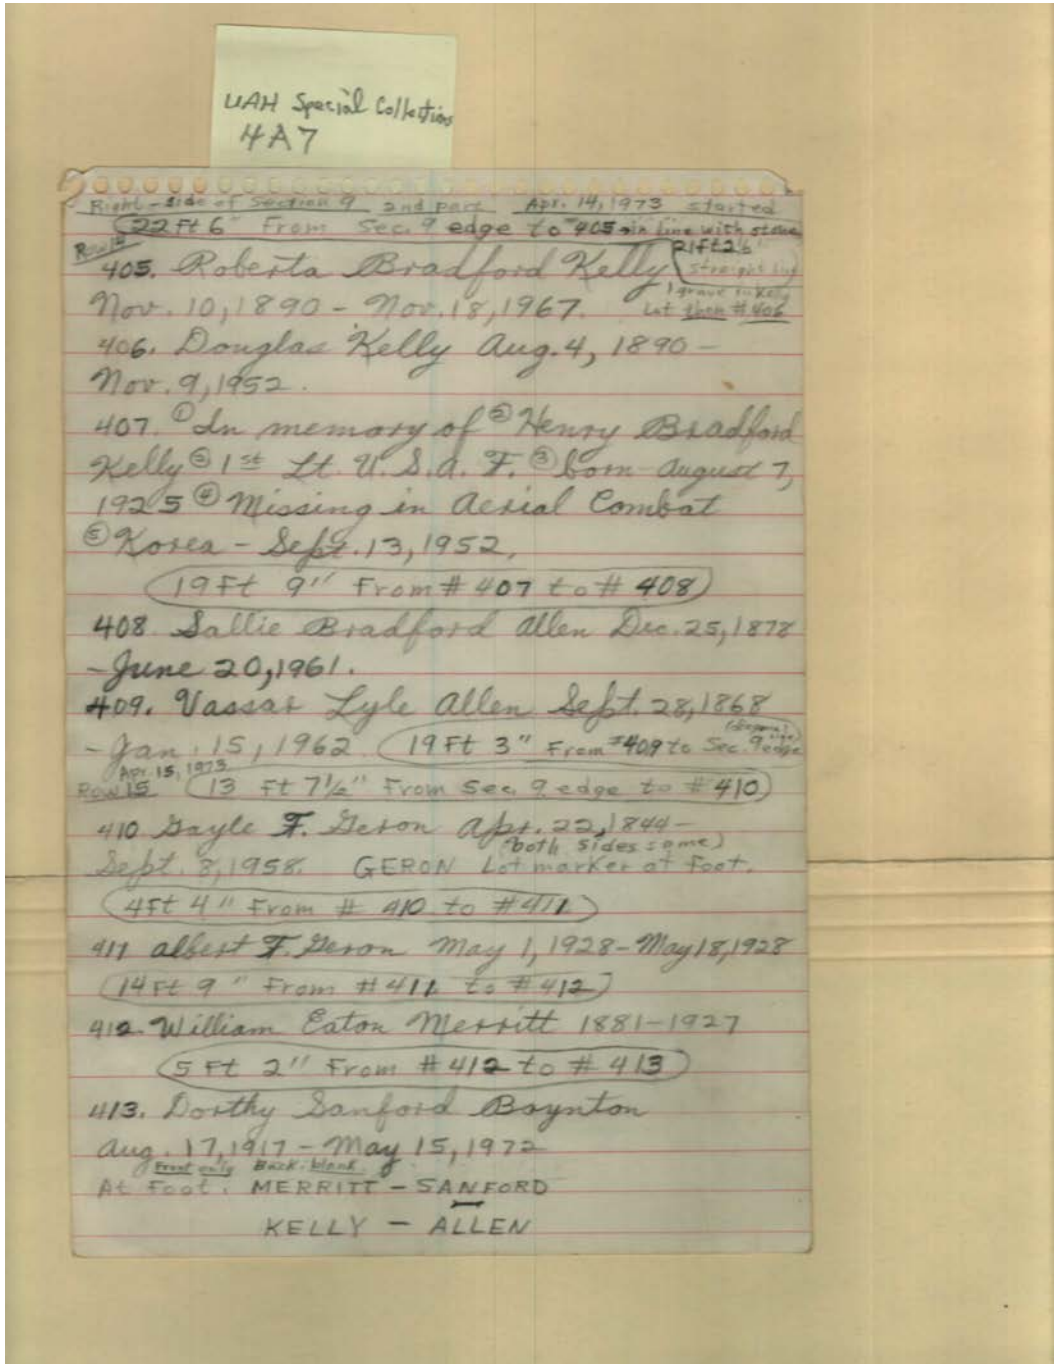 UAH Special Collections
4A7
Right-side of Section 9 2nd part Apr. 14, 1973 started
22 Ft 6" From Sec. 9 edge to #405 in line with stone
Row 14
21 ft 2½"
straight line
405. Roberta Bradford Kelly
1 grave in Kelly
Nov. 10, 1890 - Nov. 18, 1967. Lot then #406
406. Douglas Kelly Aug. 4, 1890 -
Nov. 9, 1952.
407. ① In memory of ② Henry Bradford
Kelly ③ 1st Lt. U.S.A.F. ③ born - August 7,
1925 ④ Missing in Aerial Combat
⑤ Korea - Sept. 13, 1952.
19 Ft 9" From # 407 to # 408
408. Sallie Bradford Allen Dec. 25, 1878
- June 20, 1961.
409. Vassar Lyle Allen Sept. 28, 1868
- Jan. 15, 1962 19 Ft 3" From #409 to Sec. 9 edge
Apr. 15, 1973
Row 15 13 Ft 7½" From Sec. 9 edge to #410
410 Gayle F. Geron Apr. 22, 1844 -
(both sides same)
Sept. 8, 1958. GERON Lot marker at foot.
4 Ft 4" From # 410 to #411
411 Albert F. Geron May 1, 1928 - May 18, 1928
14 Ft 9" From #411 to #412
412. William Eaton Merritt 1881-1927
5 Ft 2" From #412 to # 413
413. Dorthy Sanford Boynton
Aug. 17, 1917 - May 15, 1972
Front only Back-blank
At Foot. MERRITT - SANFORD
KELLY - ALLEN